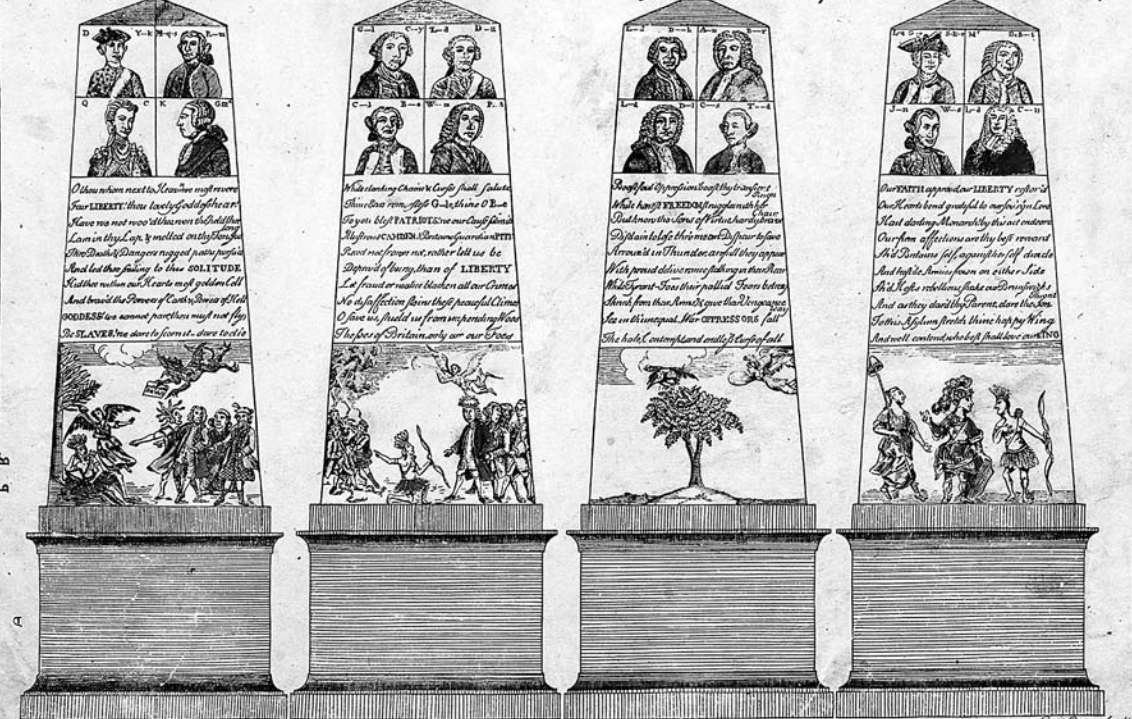 D Y--k
M-q-s R--m
Q C
K Gm^t
O thou whom next to Heav'n we most revere
Fair LIBERTY! thou lovely Goddess hear
Have we not woo'd thee won thee held thee long
Lain in thy Lap & melted on thy Tongue
Thro Deaths & Dangers rugged paths pursu'd
And led thee smiling to this SOLITUDE
Hid thee within our Hearts most golden Cell
And brav'd the Powers of Earth & Powers of Hell
GODDESS! we cannot part thou must not fly
Be SLAVES! we dare to scorn it dare to die
G--l C--y
L--d
C--l B--e
W--m P--t
While clanking Chains & Curses shall salute
Thine Ears remorseless G--le, thine O B--e
To you blest PATRIOTS, we our Cause submit
Illustrous CAMDEN, Britains Guardian PITT
Recede not frown not, rather let us be
Depriv'd of being, than of LIBERTY
Let fraud or malice blacken all our Crimes
No disaffection stains these peaceful Climes
O save us, shield us from impending Woes
The foes of Britain, only are our Foes
L--d D--h
A--n B--r
L--d
C--s T--d
Boast foul Oppression boast thy transient Reign
While honest FREEDOM struggles with her Chain
But know the Sons of Virtue hardy brave
Disdain to lose thro mean Dispair to save
Arrouz'd in Thunder, awfull they appear
With proud deliverance stalking in their Rear
While Tyrant-Foes their pallid Fears betray
Shrink from their Arms, & give their Vengeance way
See in th unequal War OPPRESSORS fall
The hate, contempt, and endless Curse of all
J--n W--s
L--d C--n
Our FAITH approv'd, our LIBERTY restor'd
Our Hearts bend grateful to our sov'reign Lord
Hail darling Monarch! by this act endear'd
Our firm affections are thy best reward
Sh'd Britains self, against her self divide
And hostile Armies frown on either Side
Sh'd Hosts rebellious, shake our Brunswick's Throne
And as they dar'd thy Parent, dare the Son
To this Asylum stretch thine happy Wing
And we'll contend, who best shall love our KING